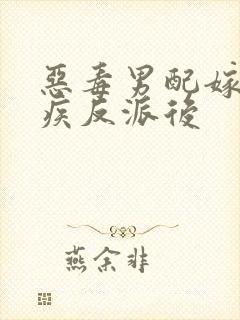 惡毒男配嫁
疾反派後
燕余非